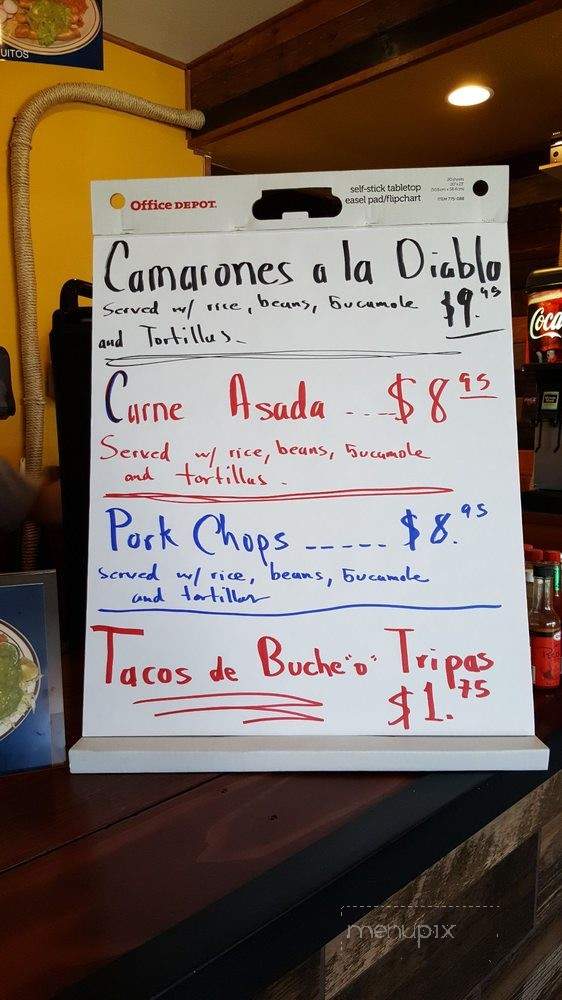 UITOS
Office DEPOT.
self-stick tabletop
easel pad/flipchart
20 sheets
ITEM 775-088
Camarones a la Diablo
Served w/ rice, beans, Gucamole $9.95
and Tortillas-
Carne Asada ....$8 95
Served w/ rice, beans, Gucamole
and tortillas.
Pork Chops ----- $8.95
served w/ rice, beans, Gucamole
and tortillas
Tacos de Buche "o" Tripas
$1.75
Coca
menupix